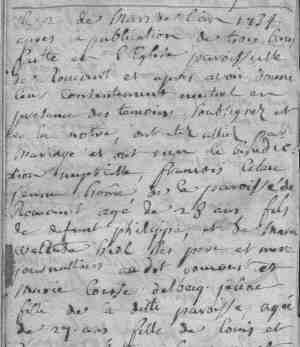 de Mars de l'an 1784
apres la publication de trois bans
faitte en l'Eglise paroissialle
de Roucourt et apres avoir donné
leur consentement mutuel en
presence des temoins soubsignez et
en la notre, ont été alliez par
Mariage et ont reçu la benedic
tion nuptialle, françois
jeune home de la paroisse de
Roucourt agé de 28 ans fils
de defunt philippe, et de Marie
ses pere et mere
journalliers audit Roucourt et
Marie jeune
fille de la ditte paroisse, agée
de 27 ans fille de Louis et